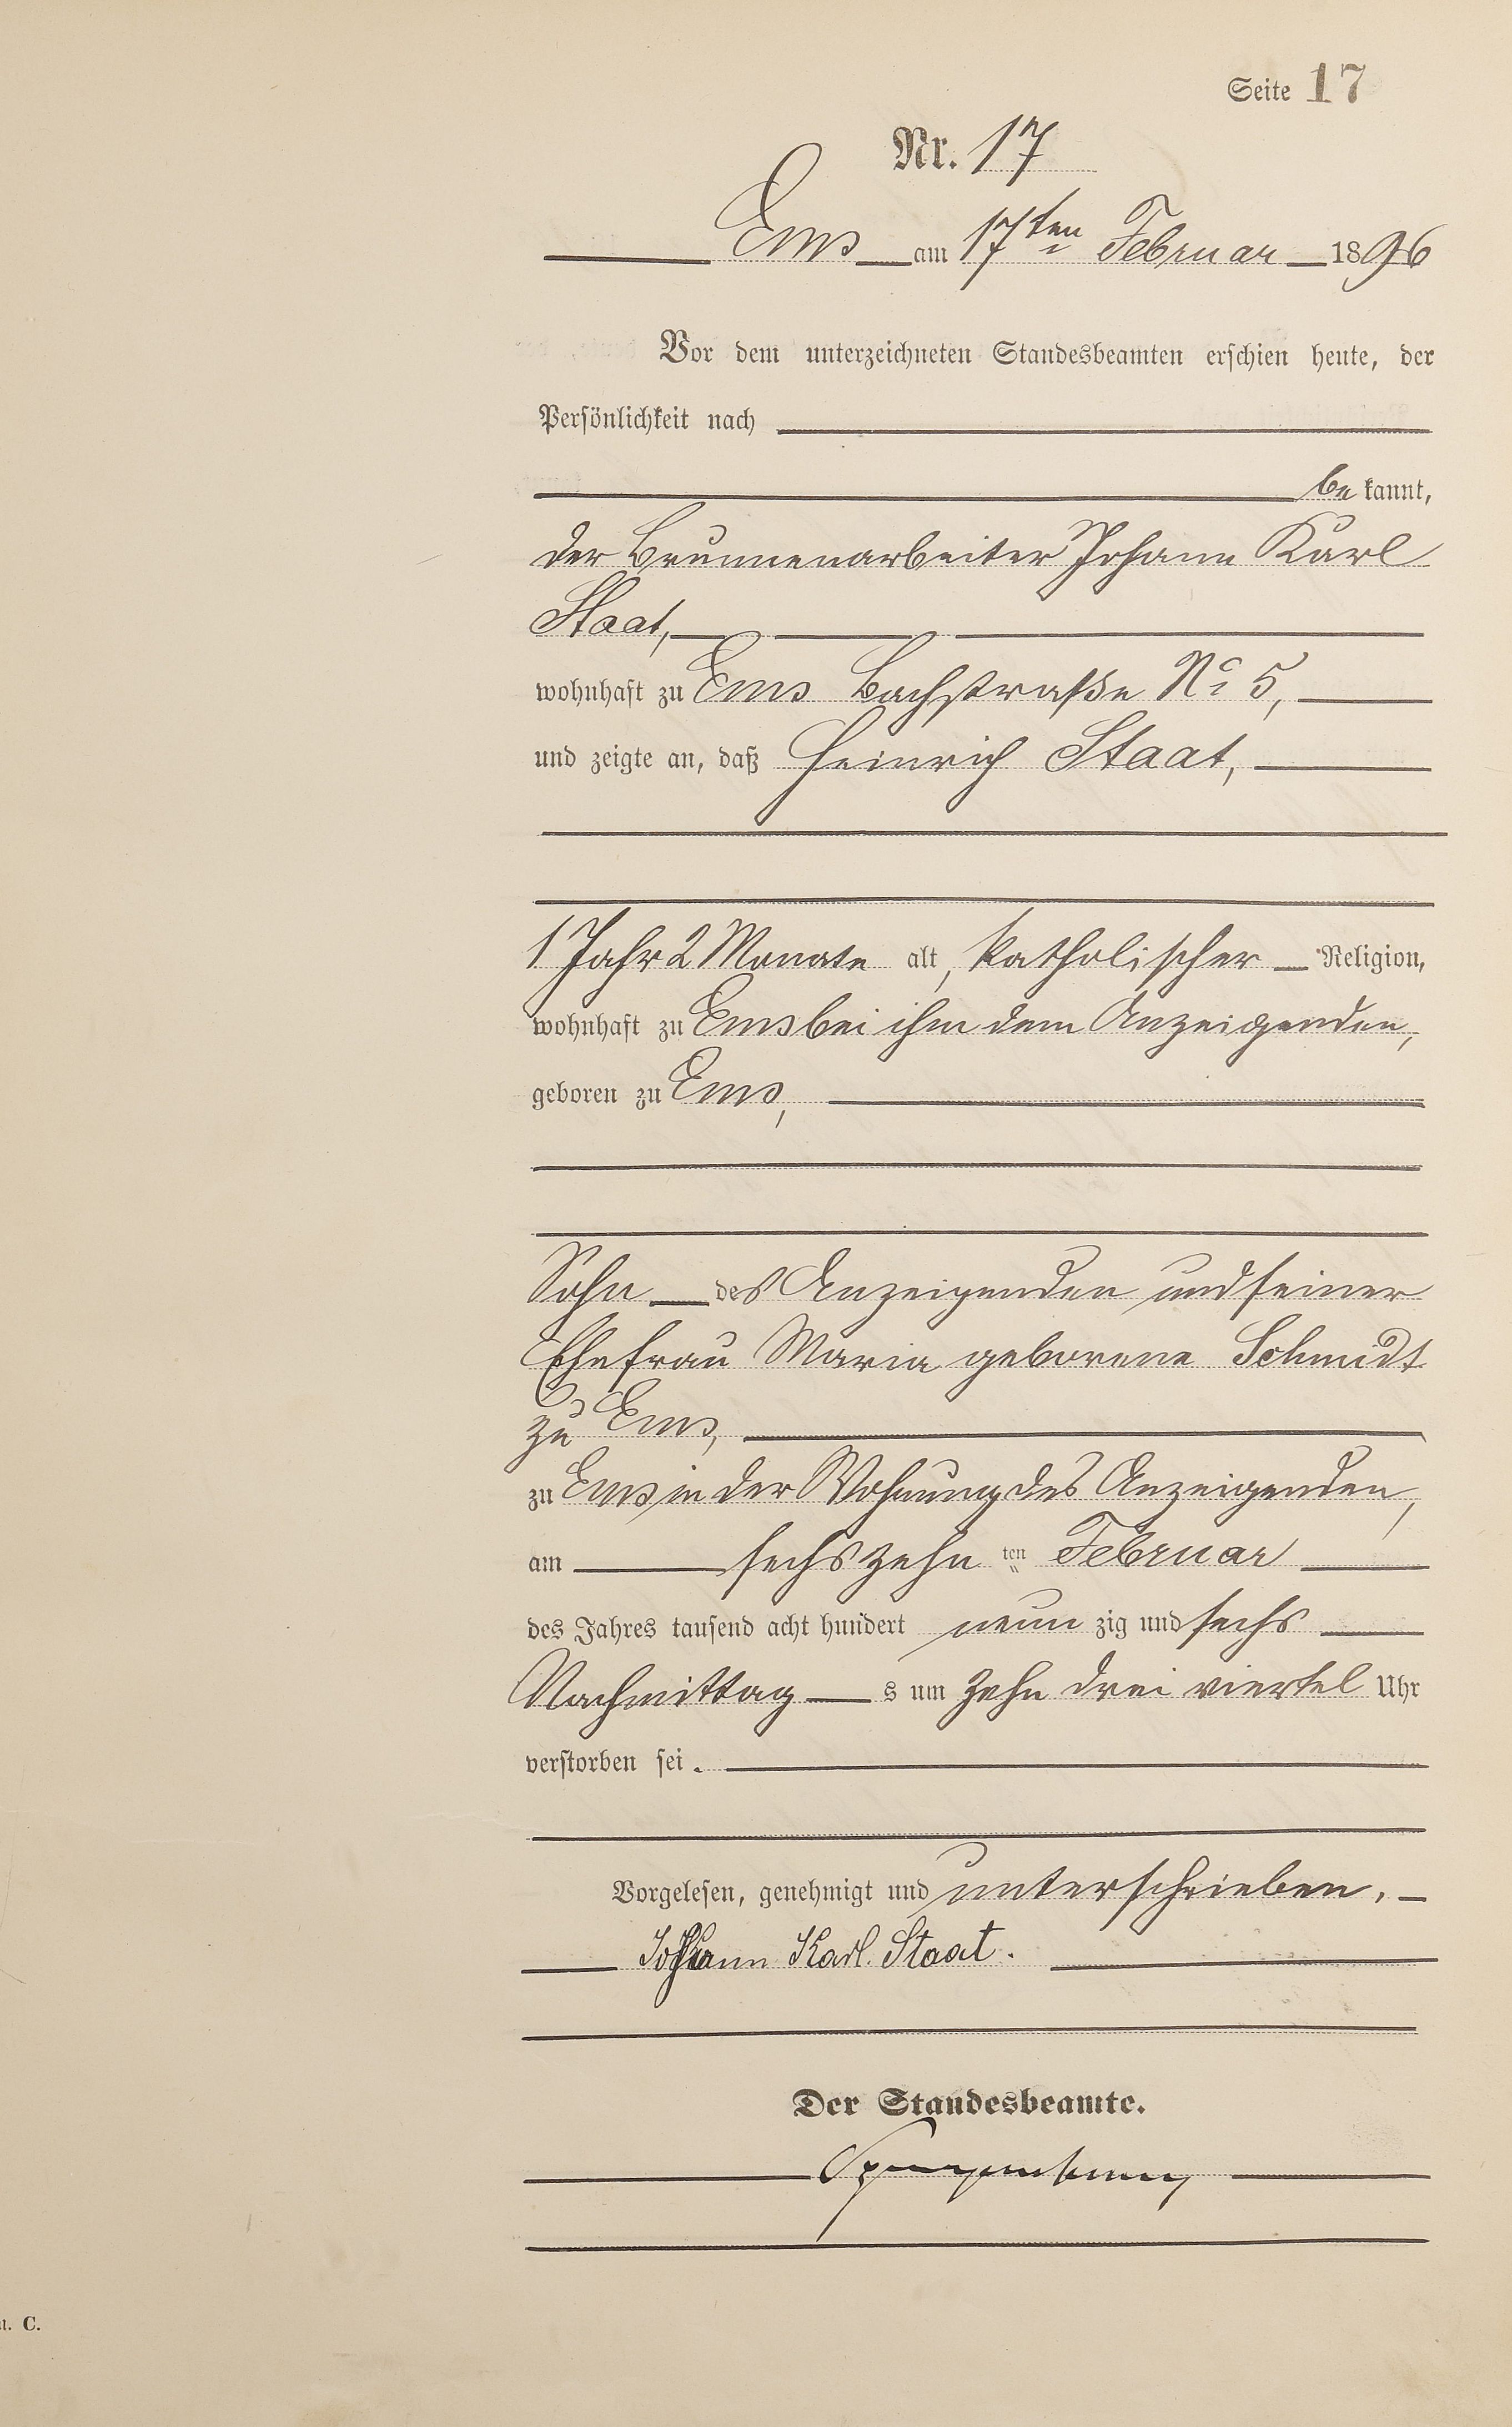 Seite 17
Nr. 17
Ems am 17ten Februar 1896
Vor dem unterzeichneten Standesbeamten erschien heute, der
Persönlichkeit nach
be kannt,
der Brunnenarbeiter Johann Karl
Staat,
wohnhaft zu Ems Bachstraße No 5,
und zeigte an, daß Heinrich Staat,
1 Jahr 2 Monate alt, katholischer Religion,
wohnhaft zu Ems bei ihm dem Anzeigenden,
geboren zu Ems,
Sohn des Anzeigenden und seiner
Ehefrau Maria geborene Schmidt
zu Ems,
zu Ems in der Wohnung des Anzeigenden,
am sechszehn ten Februar
des Jahres tausend acht hundert neun zig und sechs
Nachmittag s um zehn drei viertel Uhr
verstorben sei.
Vorgelesen, genehmigt und unterschrieben.
Johann Karl Staat.
Der Standesbeamte.
C.